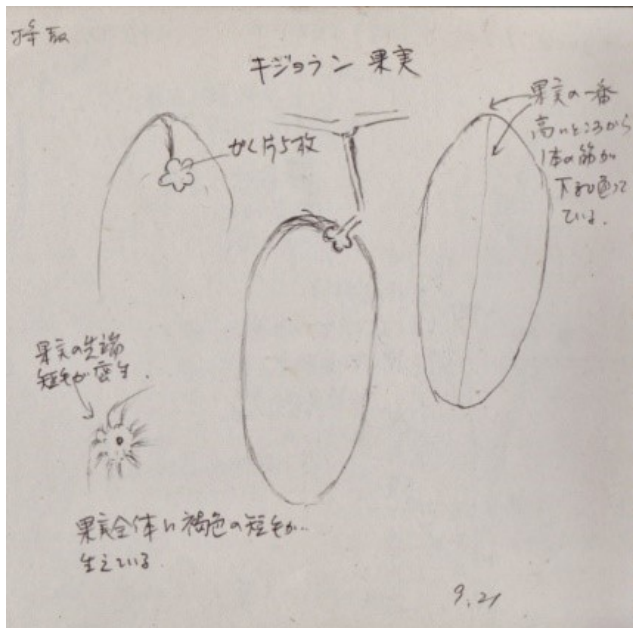 採取
キジョラン 果実
がく片5枚
果実の一番
高いところから
1本の筋が
下まで通って
いる.
果実の先端
短毛が密生.
果実全体に褐色の短毛が
生えている
9.21